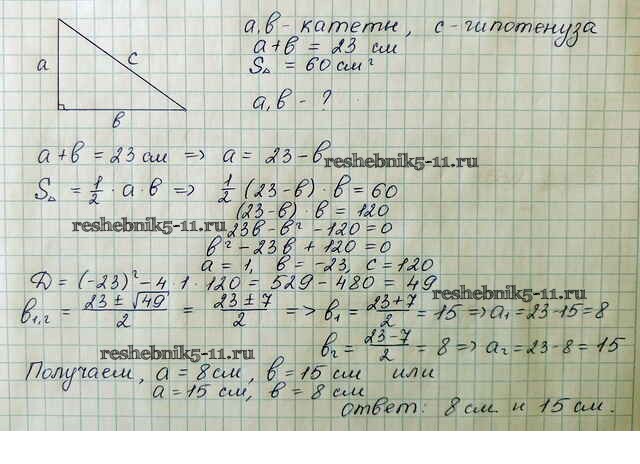 a, b - катеты, c - гипотенуза
a + b = 23 см
S△ = 60 см²
a, b - ?
a
c
b
a + b = 23 см => a = 23 - b
reshebnik5-11.ru
S△ = 1/2 · a · b => 1/2 (23 - b) · b = 60
(23 - b) · b = 120
reshebnik5-11.ru
23b - b² - 120 = 0
b² - 23b + 120 = 0
a = 1, b = -23, c = 120
D = (-23)² - 4 · 1 · 120 = 529 - 480 = 49
reshebnik5-11.ru
b1,2 = (23 ± √49)/2 = (23 ± 7)/2 => b1 = (23 + 7)/2 = 15 => a1 = 23 - 15 = 8
reshebnik5-11.ru
b2 = (23 - 7)/2 = 8 => a2 = 23 - 8 = 15
Получаем, a = 8 см, b = 15 см или
a = 15 см, b = 8 см
ответ: 8 см и 15 см.